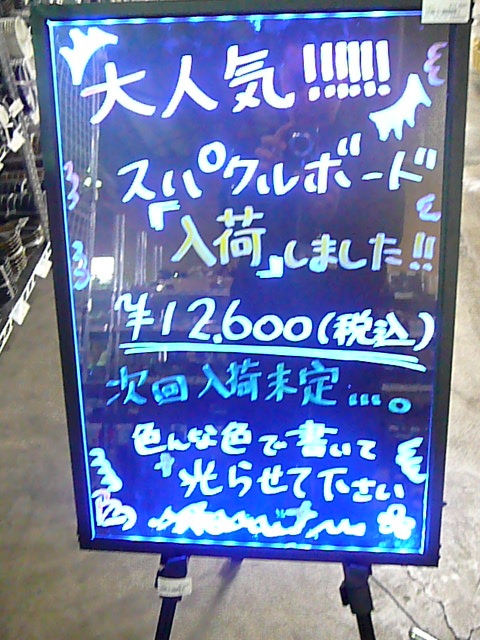 大人気!!!!!!
スパクルボード
「入荷」しました!!
¥12,600(税込)
次回入荷未定…。
色んな色で書いて
光らせて下さい